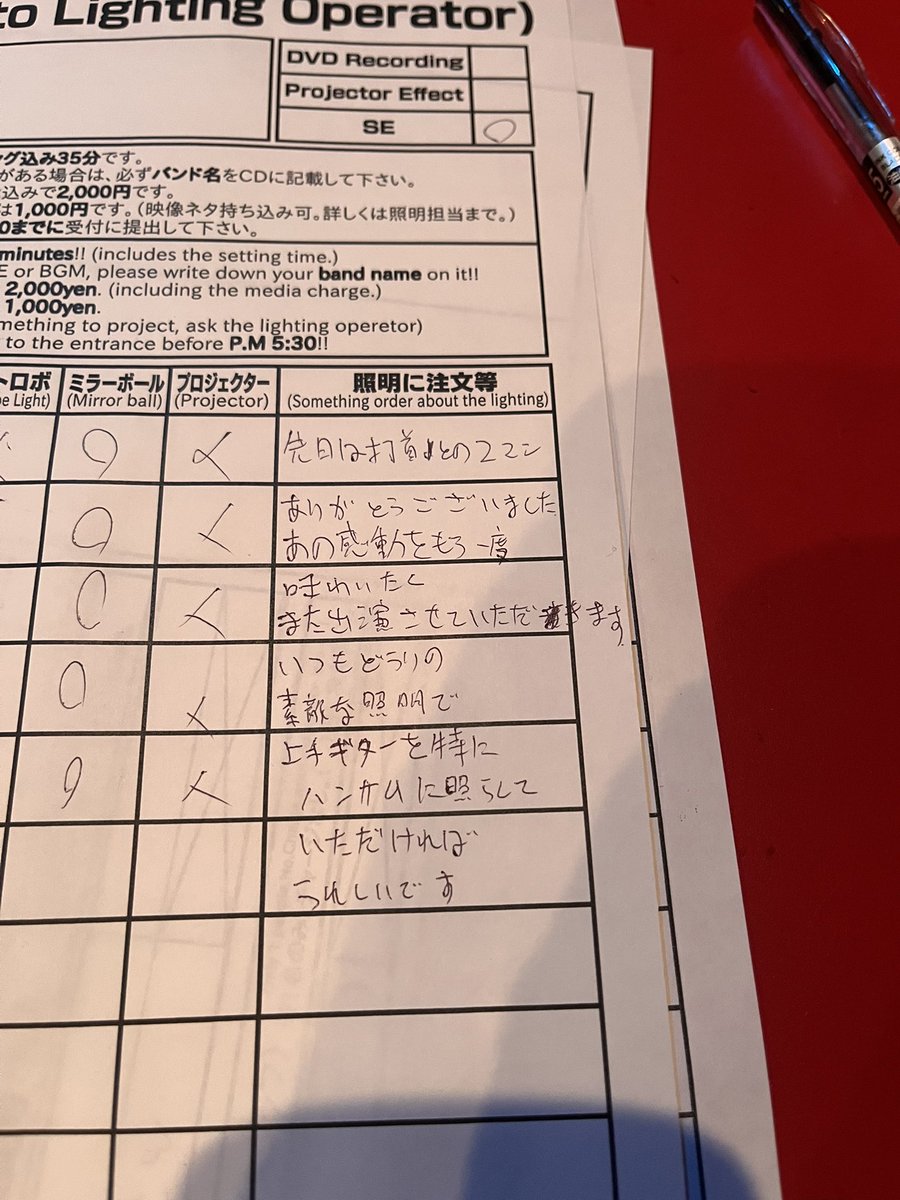 to Lighting Operator)
DVD Recording
Projector Effect
SE ○
グ込み35分です。
がある場合は、必ずバンド名をCDに記載して下さい。
込みで2,000円です。
は1,000円です。(映像ネタ持ち込み可。詳しくは照明担当まで。)
0までに受付に提出して下さい。
minutes!! (includes the setting time.)
E or BGM, please write down your band name on it!!
2,000yen. (including the media charge.)
1,000yen.
mething to project, ask the lighting operetor)
to the entrance before P.M 5:30!!
トロボ ミラーボール プロジェクター 照明に注文等
be Light) (Mirror ball) (Projector) (Something order about the lighting)
○ × 先日は打首とのツーマン
○ × ありがとうございました
あの感動をもう一度
○ × 味わいたく
また出演させていただきます
○ × いつもどうりの
素敵な照明で
○ × 上手ギターを特に
ハンサムに照らして
いただければ
うれしいです